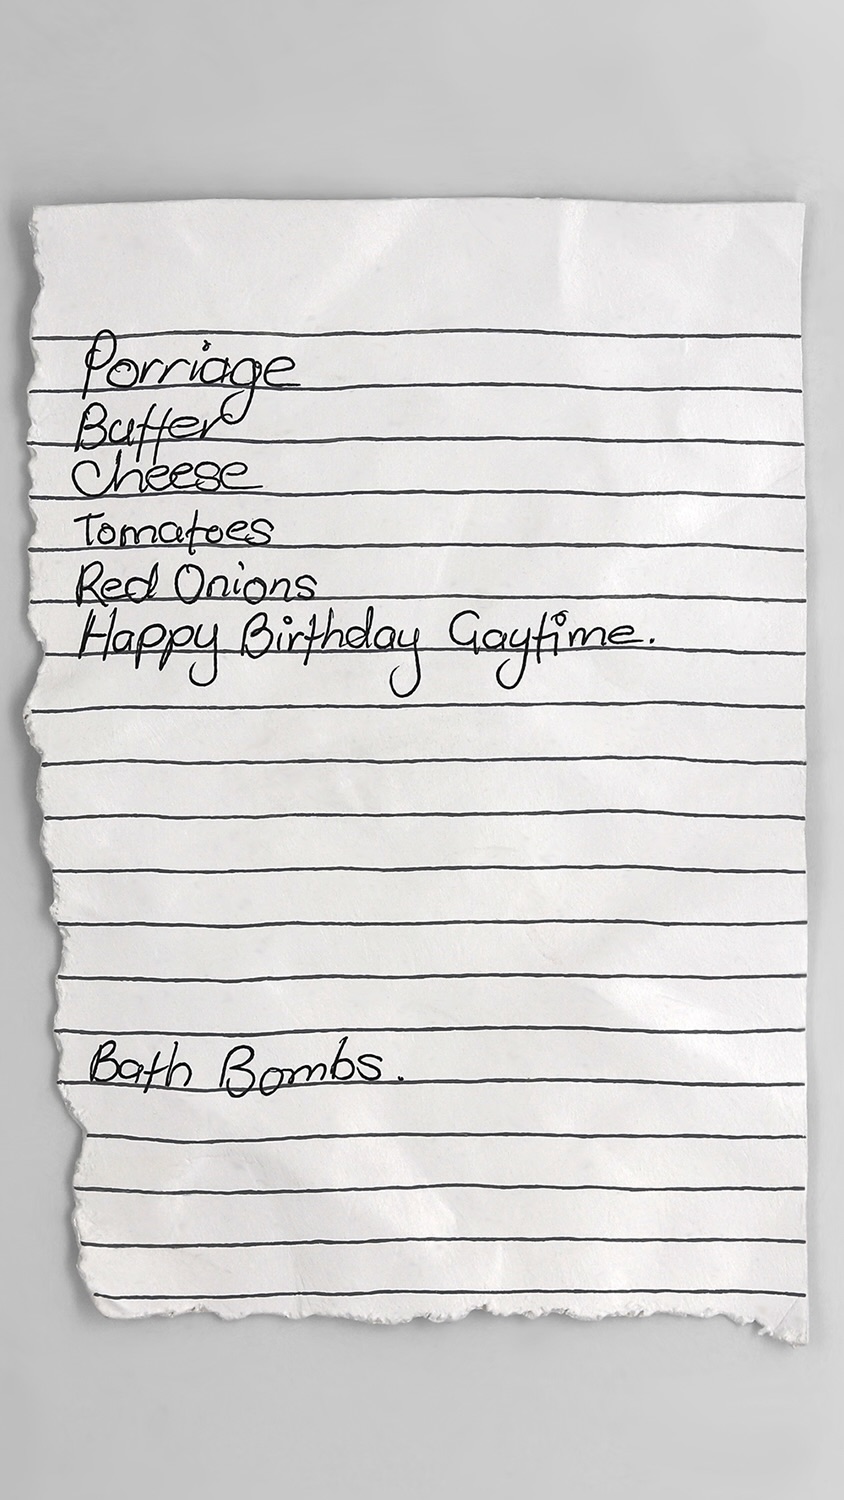 Porriage
Butter
Cheese
Tomatoes
Red Onions
Happy Birthday Gaytime.
Bath Bombs.